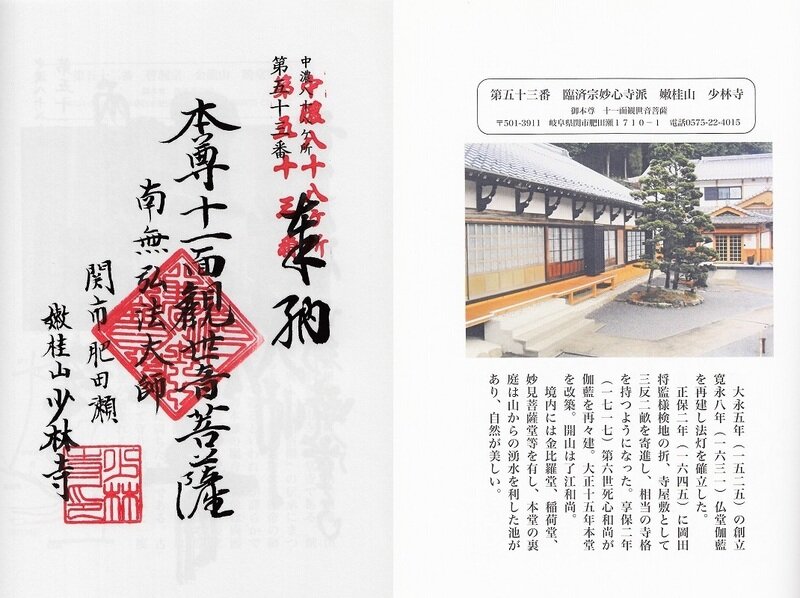 中濃八十八ヶ所
第五十三番
中濃八十八ヶ所
第五十三番
奉納
本尊十一面觀世音菩薩
南無弘法大師
関市肥田瀬
嫩桂山少林寺
第五十三番　臨済宗妙心寺派　嫩桂山　少林寺
御本尊　十一面観世音菩薩
〒501-3911　岐阜県関市肥田瀬1710-1　電話0575-22-4015
大永五年（一五二五）の創立
寛永八年（一六三一）仏堂伽藍
を再建し法灯を確立した。
正保二年（一六四五）に岡田
将監様検地の折、寺屋敷として
三反二畝を寄進し、相当の寺格
を持つようになった。享保二年
（一七一七）第六世死心和尚が
伽藍を再々建。大正十五年本堂
を改築。開山は了江和尚。
境内には金比羅堂、稲荷堂、
妙見菩薩堂等を有し、本堂の裏
庭は山からの湧水を利した池が
あり、自然が美しい。